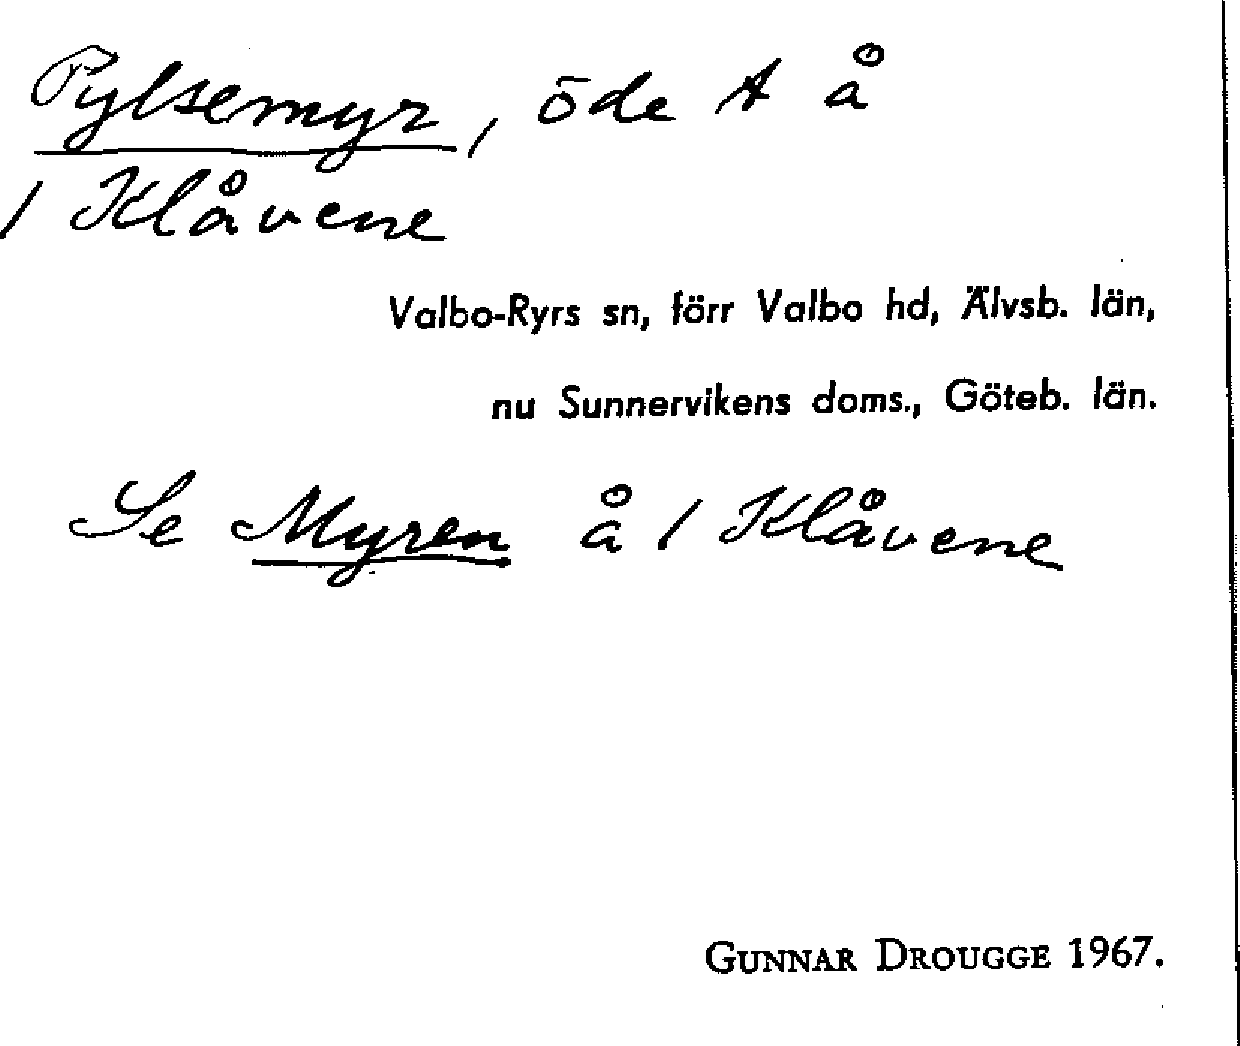 Pylsemyr, öde t å
/ Klåvene
Valbo-Ryrs sn, förr Valbo hd, Älvsb. län,
nu Sunnervikens doms., Göteb. län.
Se Myren å / Klåvene
GUNNAR DROUGGE 1967.